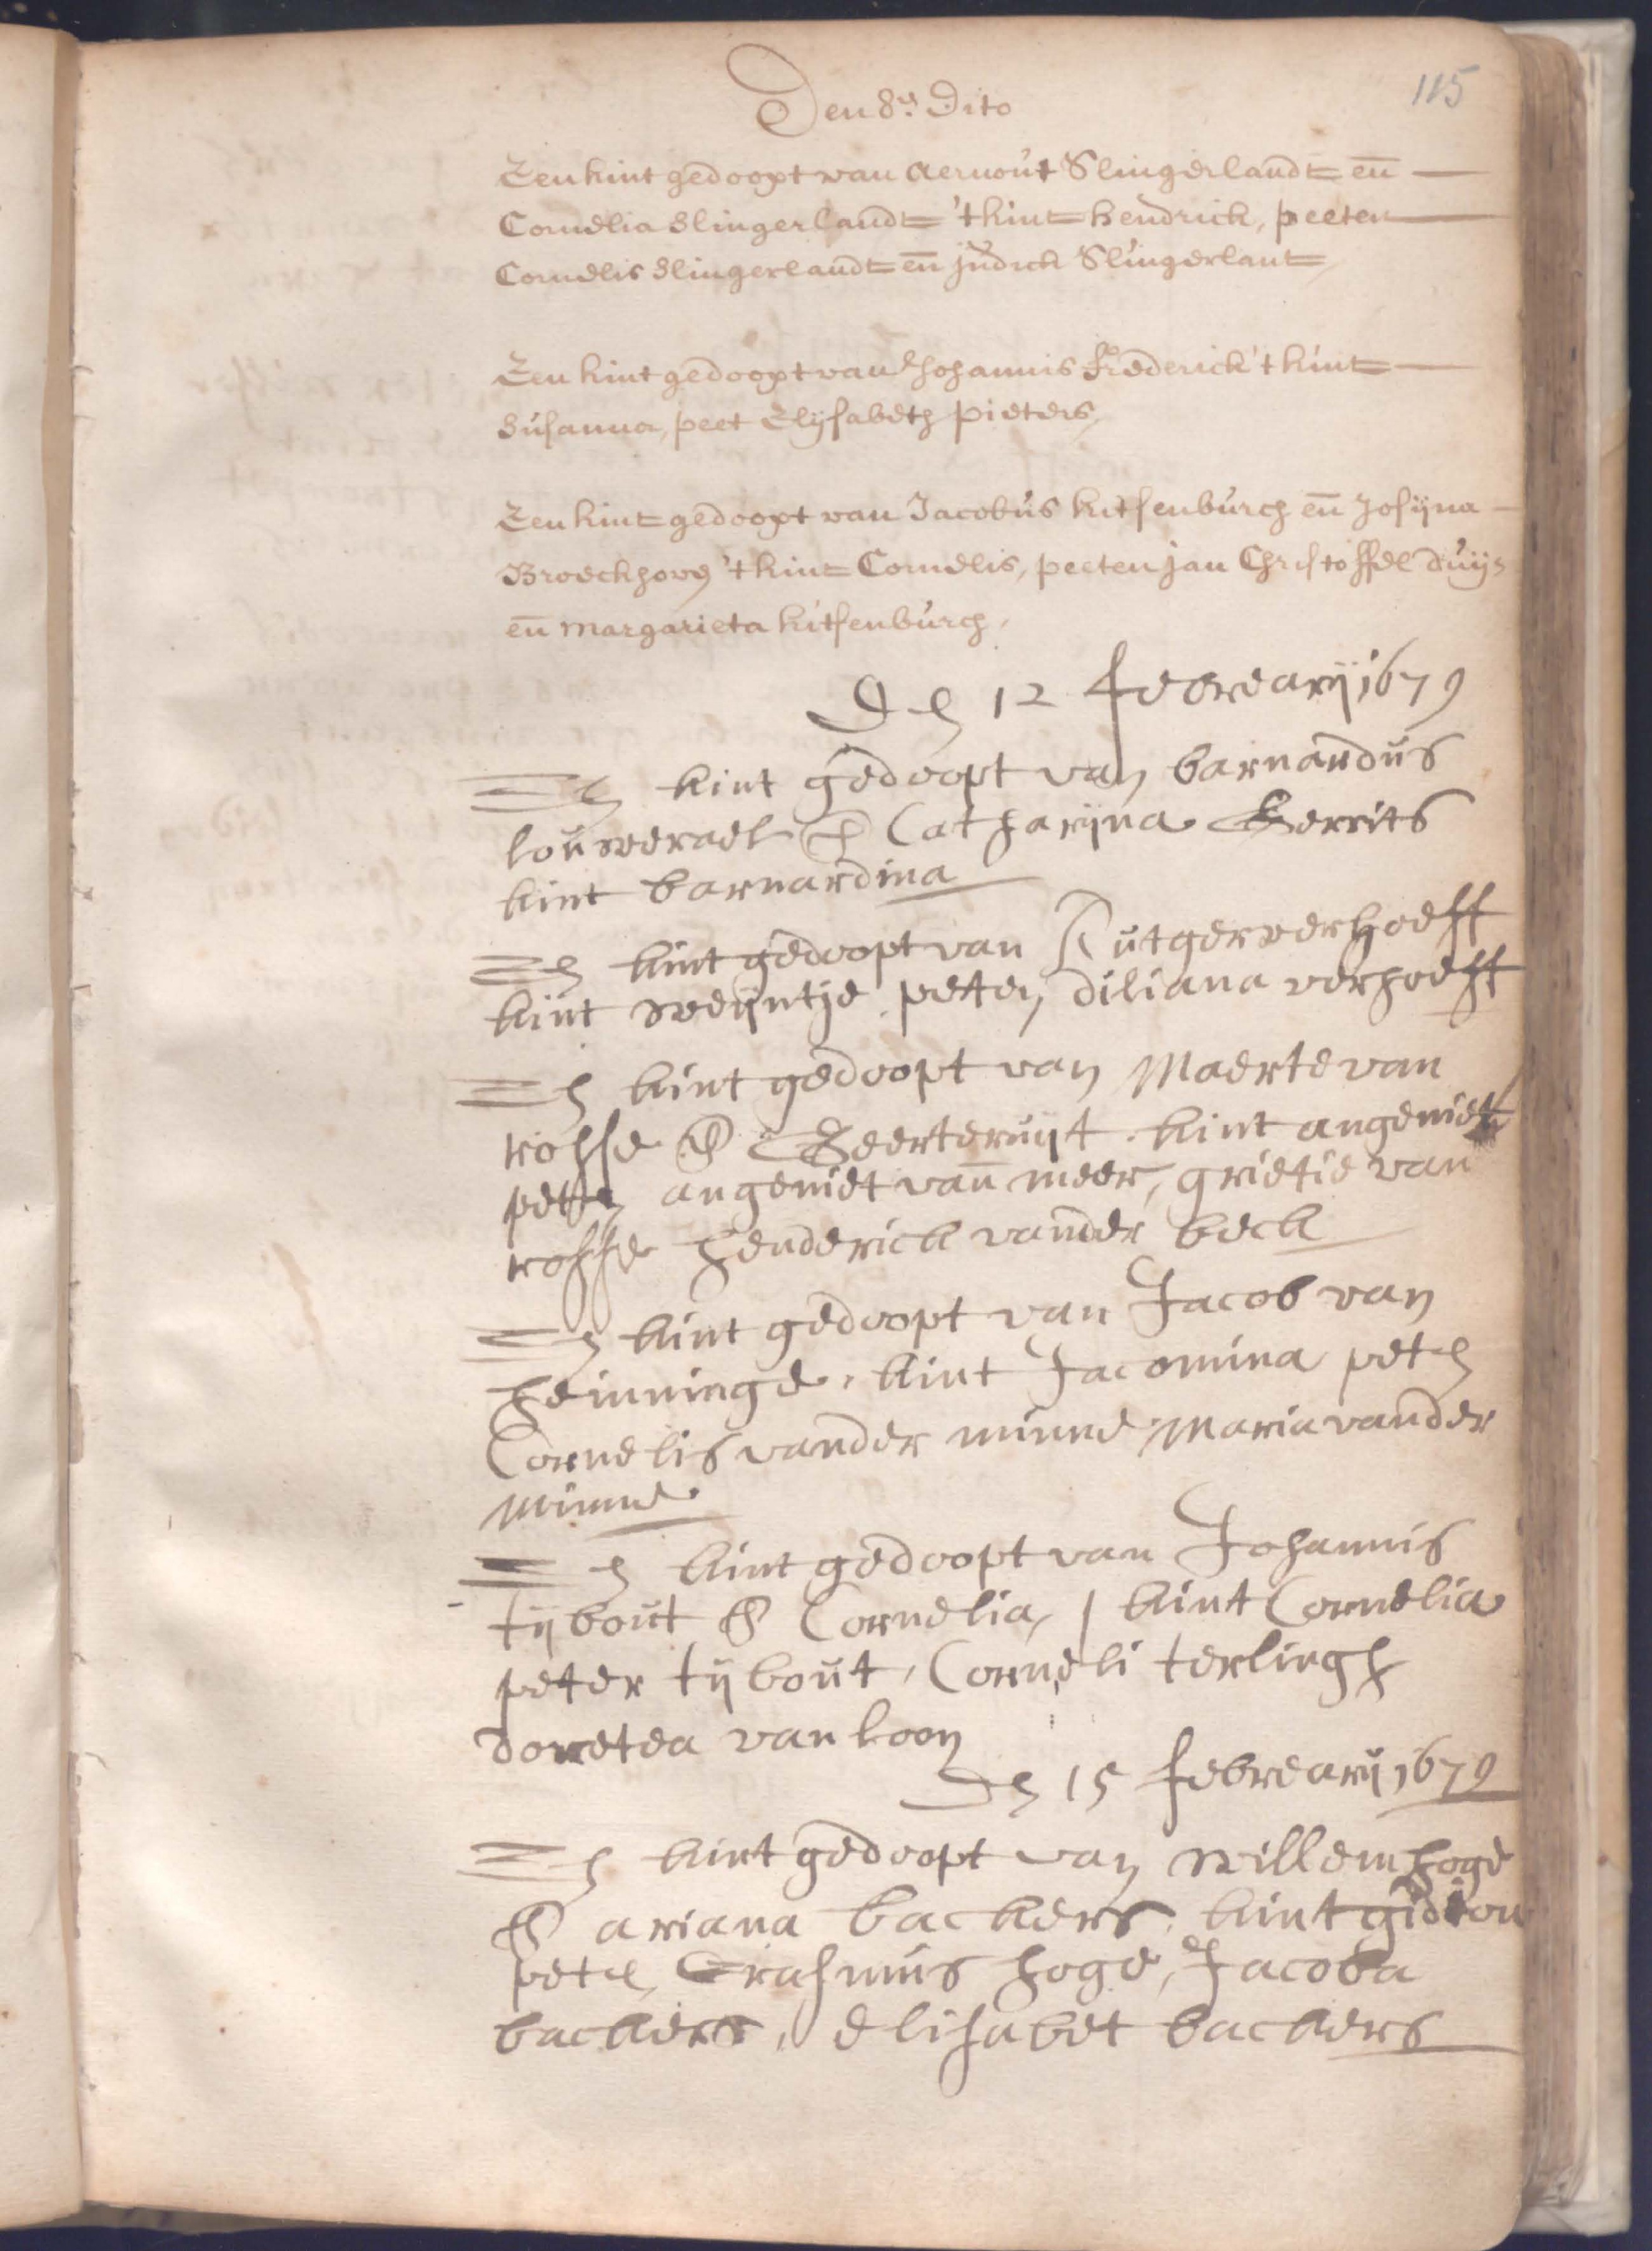 115
Den 8en Dito
Een kint gedoopt van Aernout Slingerlandt en
Cornelia Slingerlandt 't kint hendrick, peeten
Cornelis Slingerlandt en judick Slingerlant
Een kint gedoopt van Johannis Frederick 't kint
Susanna, peet Elijsabeth Pieters
Een kint gedoopt van Jacobus kitsenburch en Josijna
Broeckhoven 't kint Cornelis, peeten jan Christoffel duijs
en margarieta kitsenburch
Den 12 febrearij 1679
Een kint gedoopt van barnardus
louwerael en Catharijna Gerrits
kint barnardina
Een kint gedoopt van Rutger verhoeff
kint weijntje peten diliana verhoeff
Een kint gedoopt van Maerte van
rosse en Geerteruijt kint angeniet
peten angeniet van meer, grietie van
rosse henderick vander beck
Een kint gedoopt van Jacob van
heinninge, kint Jacomina peten
Cornelis vander minne Maria vander
Minne
Een kint gedoopt van Johannis
tijbout en Cornelia, kint Cornelia
peter tijbout, Corneli terlingh
doretea van loon
Den 15 febrearij 1679
Een kint gedoopt van willem hoge
en ariana backers, kint gidion
peten Erasmus hoge, Jacoba
backers, elisabet backers